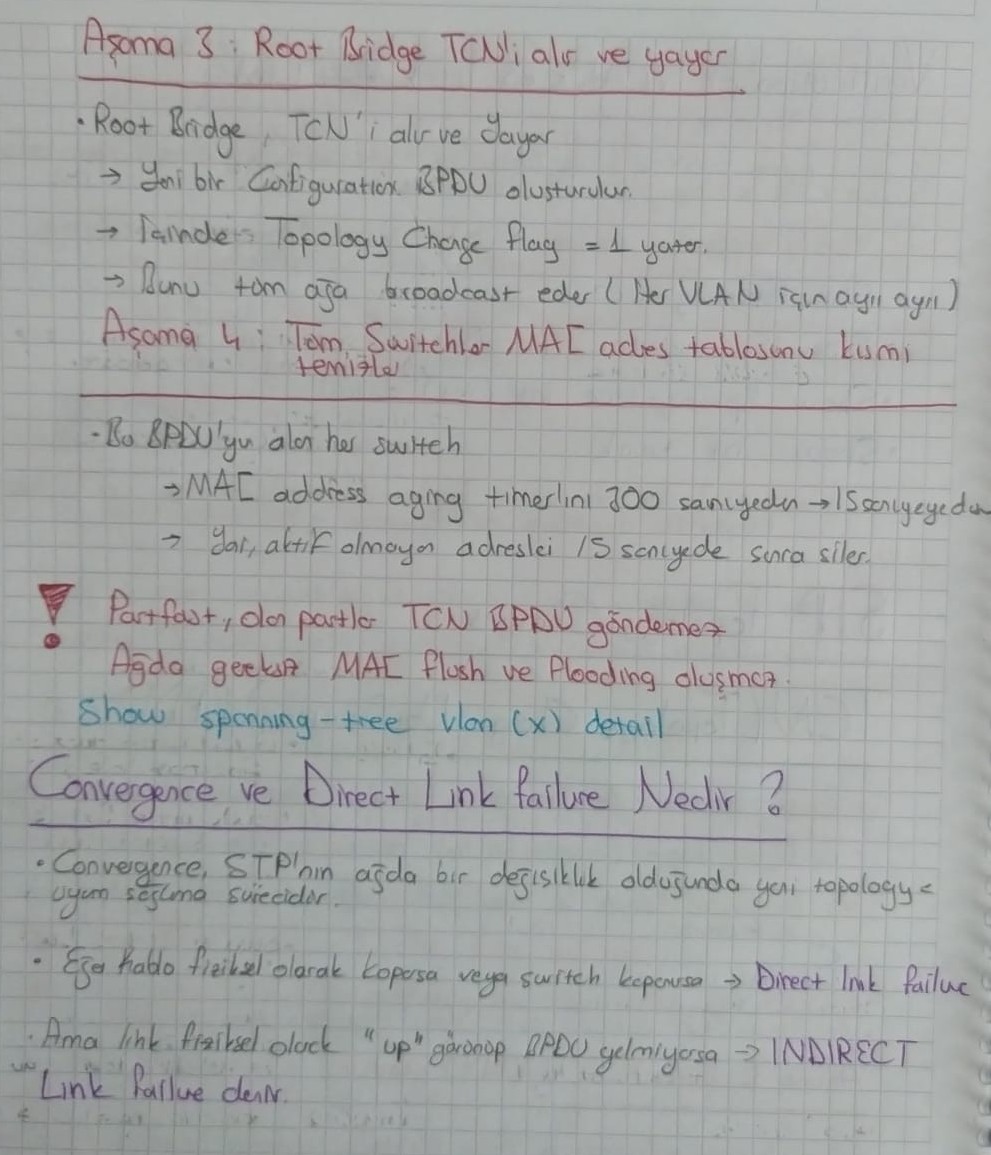 Aşama 3 : Root Bridge TCN'i alır ve yayar
• Root Bridge, TCN'i alır ve Yayar
→ Yeni bir Configuration BPDU oluşturulur.
→ İçinde Topology Change flag = 1 yazar.
→ Bunu tüm ağa broadcast eder (Her VLAN için ayrı ayrı)
Aşama 4 : Tüm Switchler MAC adres tablosunu kısmi
temizler
- Bu BPDU'yu alan her switch
→ MAC address aging timerlını 300 saniyeden → 15 saniyeye
→ Yani, aktif olmayan adresleri 15 saniyede sonra siler.
! Portfast, olan portlar TCN BPDU göndermez
Ağda gereksiz MAC flush ve flooding oluşmaz.
Show spanning-tree vlan (x) detail
Convergence ve Direct Link failure Nedir ?
• Convergence, STP'nin ağda bir değişiklik olduğunda yeni topology
uyum sağlama sürecidir.
• Eğer kablo fiziksel olarak koparsa veya switch kapanırsa → Direct link failure
. Ama link fiziksel olarak "up" görünüp BPDU gelmiyorsa → INDIRECT
Link failure denir.